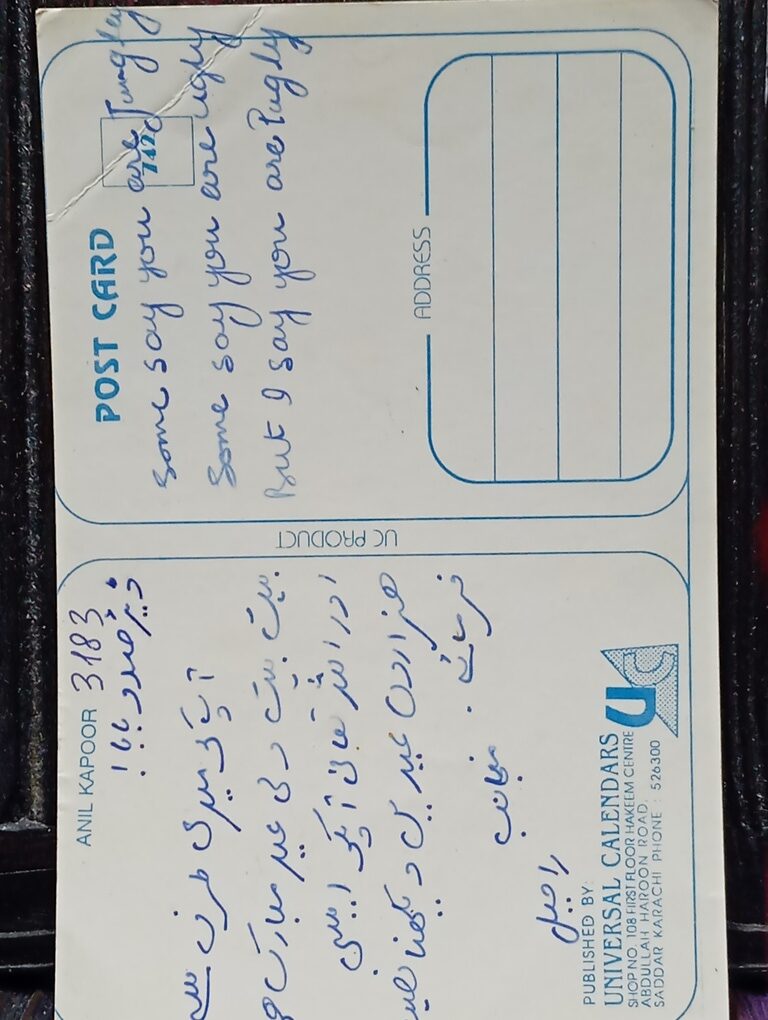 ANIL KAPOOR 3183
ڈیئر
آپ کو میری طرف سے
بہت بہت دلی عید مبارک ہو
اور اللہ تعالیٰ آپکو ایسی
ہزاروں عیدیں دیکھنا
فرمائے۔
منجانب
راحیل
PUBLISHED BY:
UNIVERSAL CALENDARS
SHOP NO. 108 FIRST FLOOR HAKEEM CENTRE
ABDULLAH HAROON ROAD,
SADDAR KARACHI PHONE : 526300
UC
UC PRODUCT
POST CARD
Some say you are Jungly
Some say you are ugly
But I say you are Pugly
ADDRESS